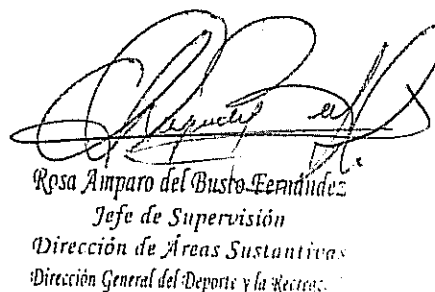 Rosa Amparo del Busto Fernández
Jefe de Supervisión
Dirección de Áreas Sustantivas
Dirección General del Deporte y la Recreac.